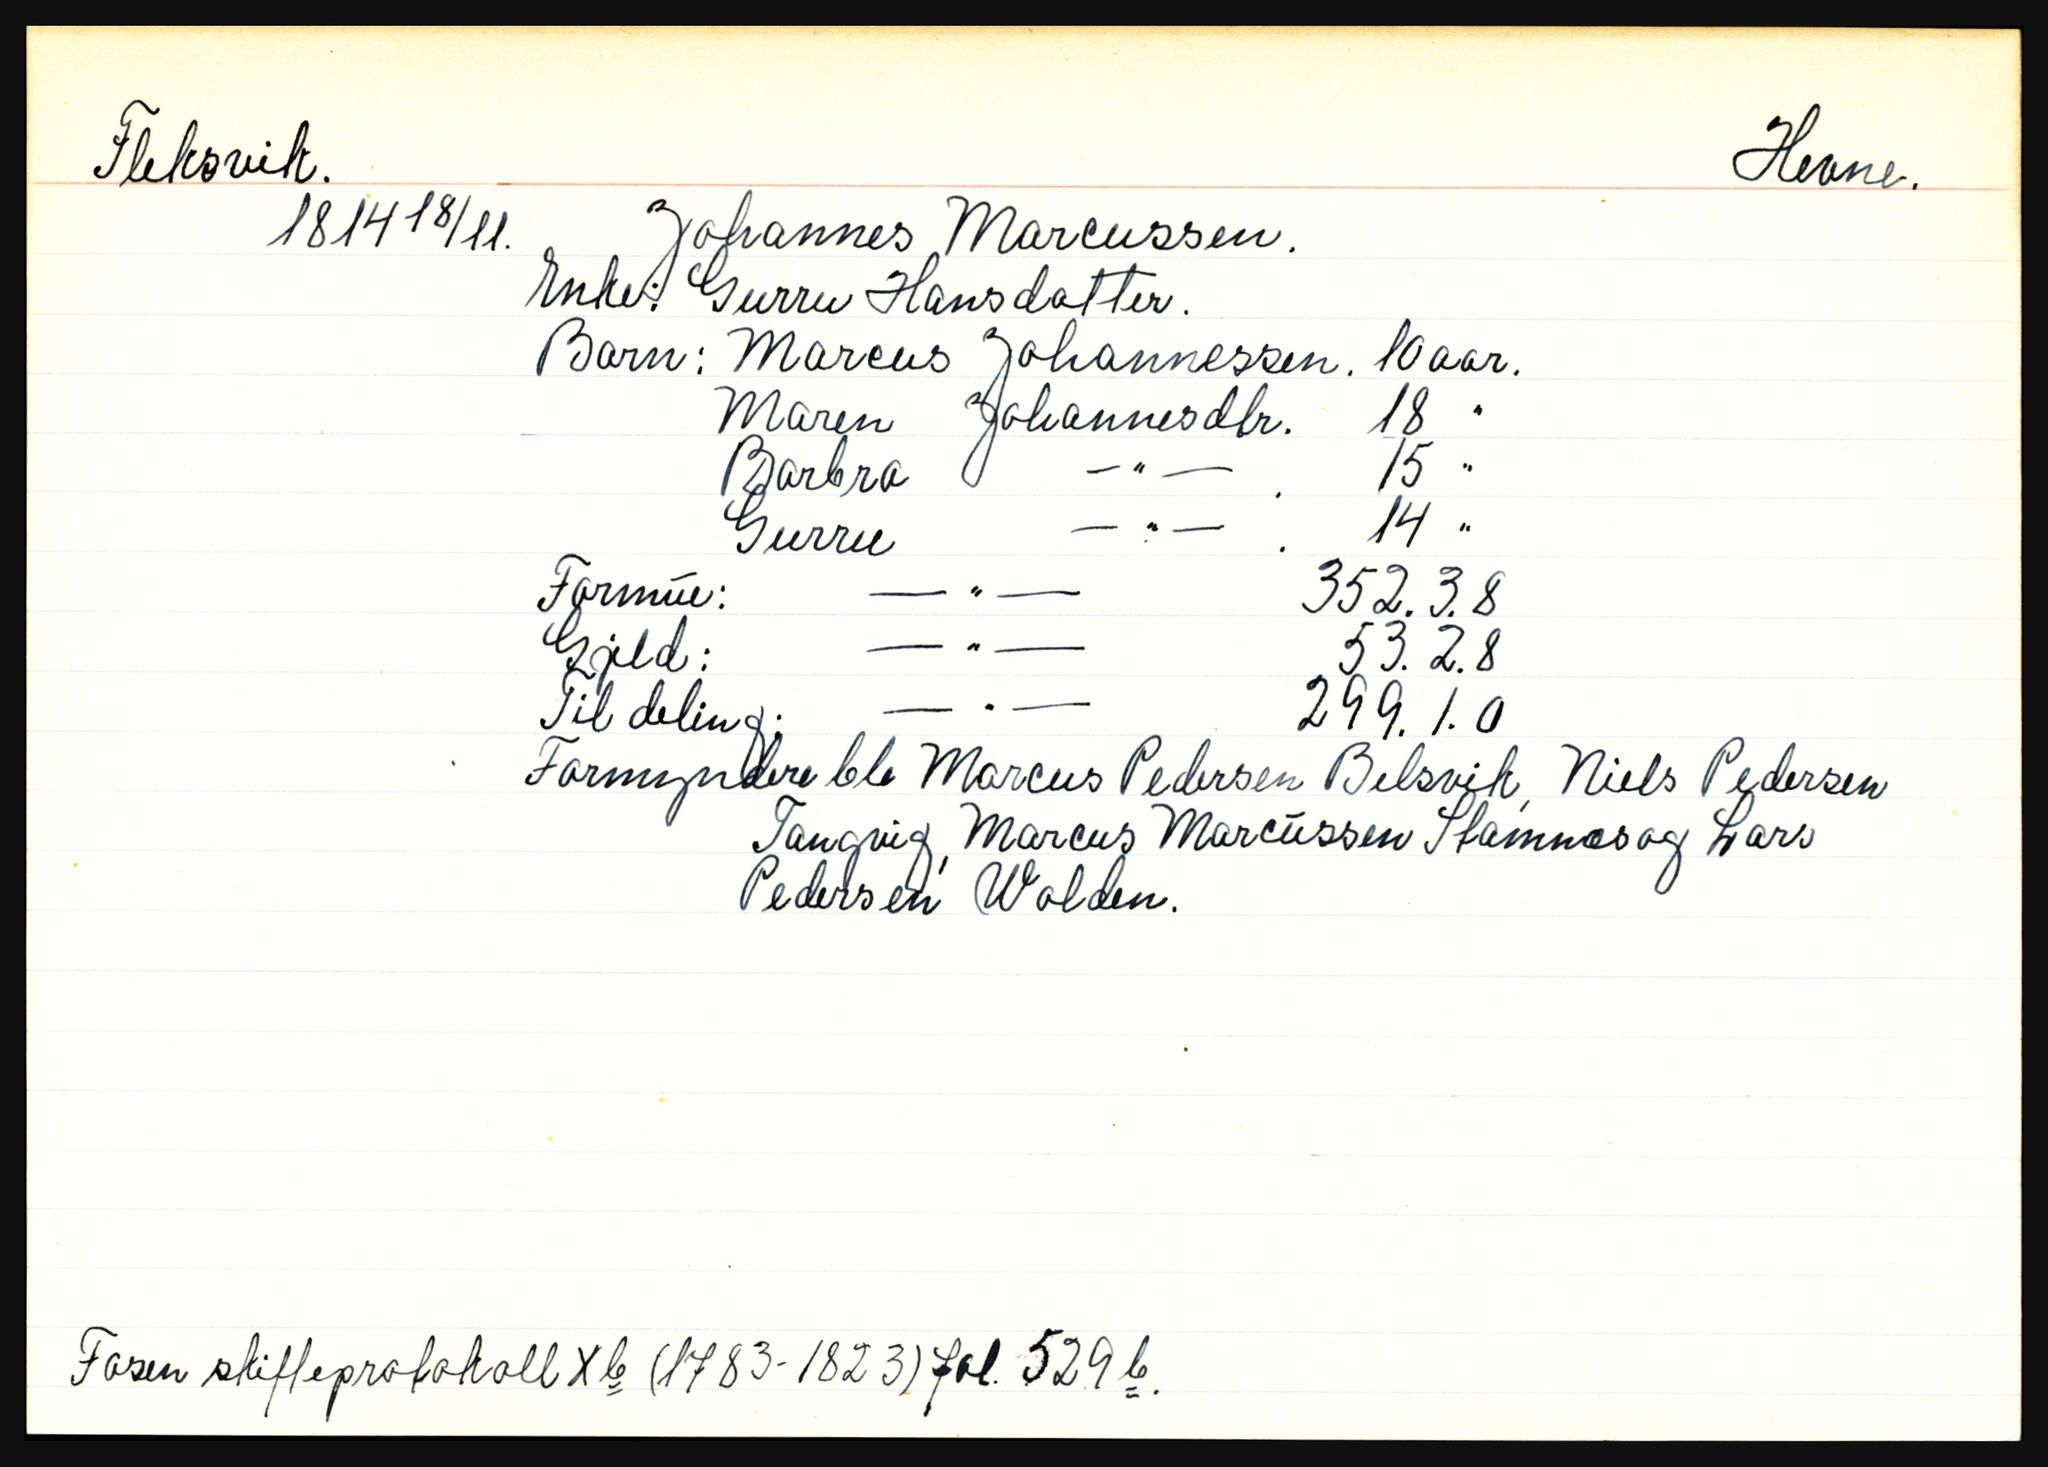 Fleksvik. Hevne.
1814 18/11. Johannes Marcussen.
Enke: Gurru Hansdatter.
Barn: Marcus Johannessen. 10 aar.
Maren Johannesdtr. 18 "
Barbra —"— . 15 "
Gurru —"— . 14 "
Formūe: —"— 352. 3. 8
Gjeld: —"— 53. 2. 8
Til deling: —"— 299. 1. 0
Formyndere ble Marcus Pedersen Belsvik, Niels Pedersen
Tangvig, Marcus Marcūssen Stamnes og Lars
Pedersen Wolden.
Fosen skifteprotokoll Xb (1783-1823) fol. 529 b.